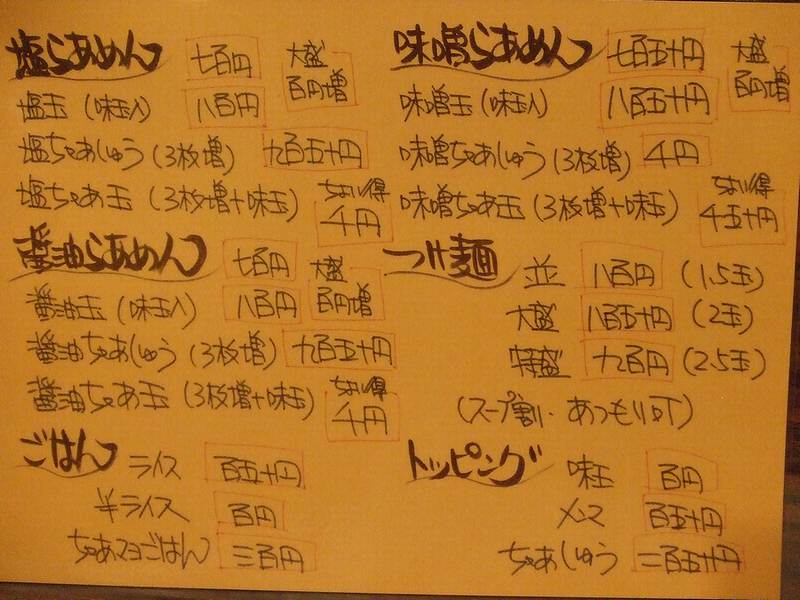 塩らあめん 七百円 大盛 百円増
塩玉（味玉入） 八百円
塩ちゃあしゅう（3枚増） 九百五十円
塩ちゃあ玉（3枚増+味玉） ちょい得 千円
醤油らあめん 七百円 大盛 百円増
醤油玉（味玉入） 八百円
醤油ちゃあしゅう（3枚増） 九百五十円
醤油ちゃあ玉（3枚増+味玉） ちょい得 千円
ごはん ライス 百五十円
半ライス 百円
ちゃあマヨごはん 三百円
味噌らあめん 七百五十円 大盛 百円増
味噌玉（味玉入） 八百五十円
味噌ちゃあしゅう（3枚増） 千円
味噌ちゃあ玉（3枚増+味玉） ちょい得 千五十円
つけ麺 並 八百円（1.5玉）
大盛 八百五十円（2玉）
特盛 九百円（2.5玉）
（スープ割・あつもり可）
トッピング 味玉 百円
メンマ 百五十円
ちゃあしゅう 二百五十円